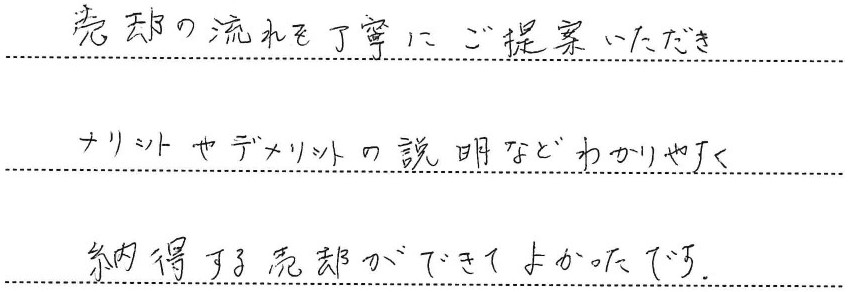 売却の流れを丁寧にご提案いただき
メリットやデメリットの説明などわかりやすく
納得する売却ができてよかったです.